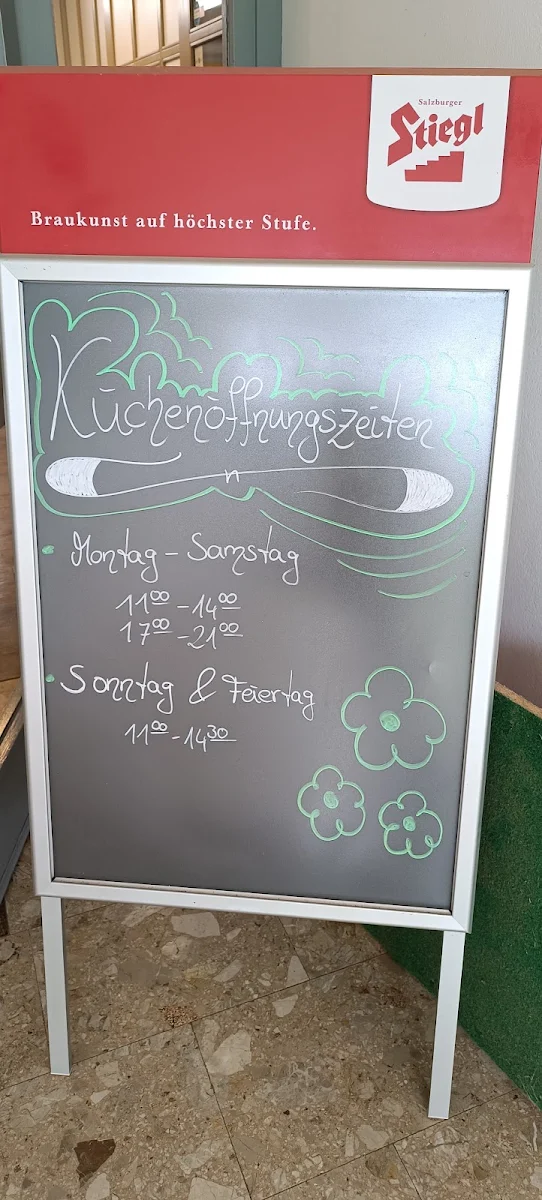 Salzburger
Stiegl
Braukunst auf höchster Stufe.
Küchenöffnungszeiten
Montag - Samstag
11⁰⁰ - 14⁰⁰
17⁰⁰ - 21⁰⁰
Sonntag & Feiertag
11⁰⁰ - 14³⁰